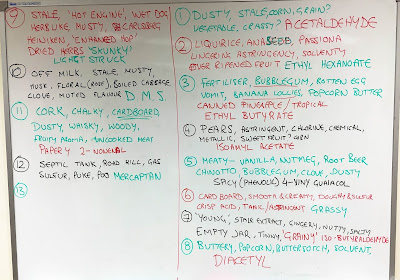 ① DUSTY, STALE, CORN, GRAIN?
VEGETABLE, GRASSY? ACETALDEHYDE
② LIQUIRICE, ANASEED, PASSIONA
LINGERING ASTRINGENCY, SOLVENTY
OVER RIPENED FRUIT ETHYL HEXANOATE
③ FERTILISER, BUBBLEGUM, ROTTEN EGG
VOMIT, BANANA LOLLIES, POPCORN BUTTER
CANNED PINEAPPLE / TROPICAL
ETHYL BUTYRATE
④ PEARS, ASTRINGENT, CHLORINE, CHEMICAL,
METALLIC, SWEET FRUIT? CORN
ISOAMYL ACETATE
⑤ MEATY - VANILLA, NUTMEG, ROOT BEER
CHINOTTO, BUBBLEGUM, CLOVE, DUSTY
SPICY (PHENOLIC) 4-VINY GUAIACOL
⑥ CARD BOARD, SMOOTH & CREAMY, DOUGHY & SULFUR
CRISP ACID, TANIC / ASTRINGENT GRASSY
⑦ 'YOUNG', STALE EXTRACT, GINGERY, NUTTY, SALTY
EMPTY JAR, TINNY, 'GRAINY' ISO-BUTYRALDEHYDE
⑧ BUTTERY, POPCORN, BUTTERSCOTCH, SOLVENT,
DIACETYL
⑨ STALE, HOT ENGINE, WET DOG
HERB LIKE MUSTY, CARLSBERG
HEINIKEN, 'ENHANCED HOP'
DRIED HERBS 'SKUNKY'
LIGHT STRUCK
⑩ OFF MILK, STALE, MUSTY
MUSK, FLORAL (ROSE), BOILED CABBAGE
CLOVE, MUTED FLAVOUR D.M.S.
⑪ CORK, CHALKY, CARDBOARD
DUSTY, WHISKY, WOODY,
FRUITY AROMA, UNCOOKED MEAT
PAPERY 2-NONENAL
⑫ SEPTIC TANK, ROAD KILL, GAS
SULFUR, PUKE, POO MERCAPTAN
⑬